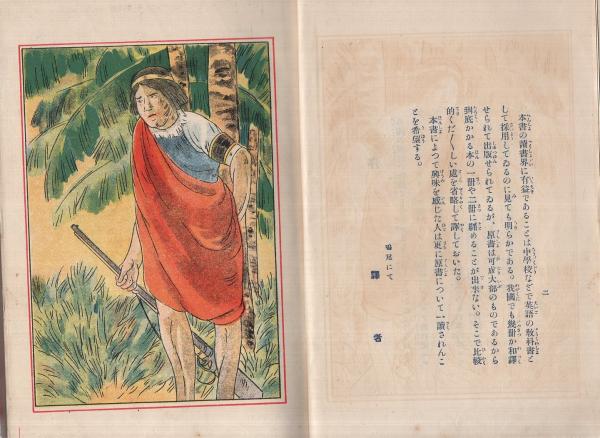 二
本書の讀書界に有益であることは中學校などで英語の敎科書と
して採用してゐるのに見ても明らかである。我國でも幾册か和譯
せられて出版せられてゐるが、原書は可成大部のものであるから
到底かかる本の一册や二册に纏めることが出來ない。そこで比較
的くだ〳〵しい處を省略して譯しておいた。
本書によつて興味を感じた人は更に原書について一讀されんこ
とを希望する。
鳴尾にて
譯者